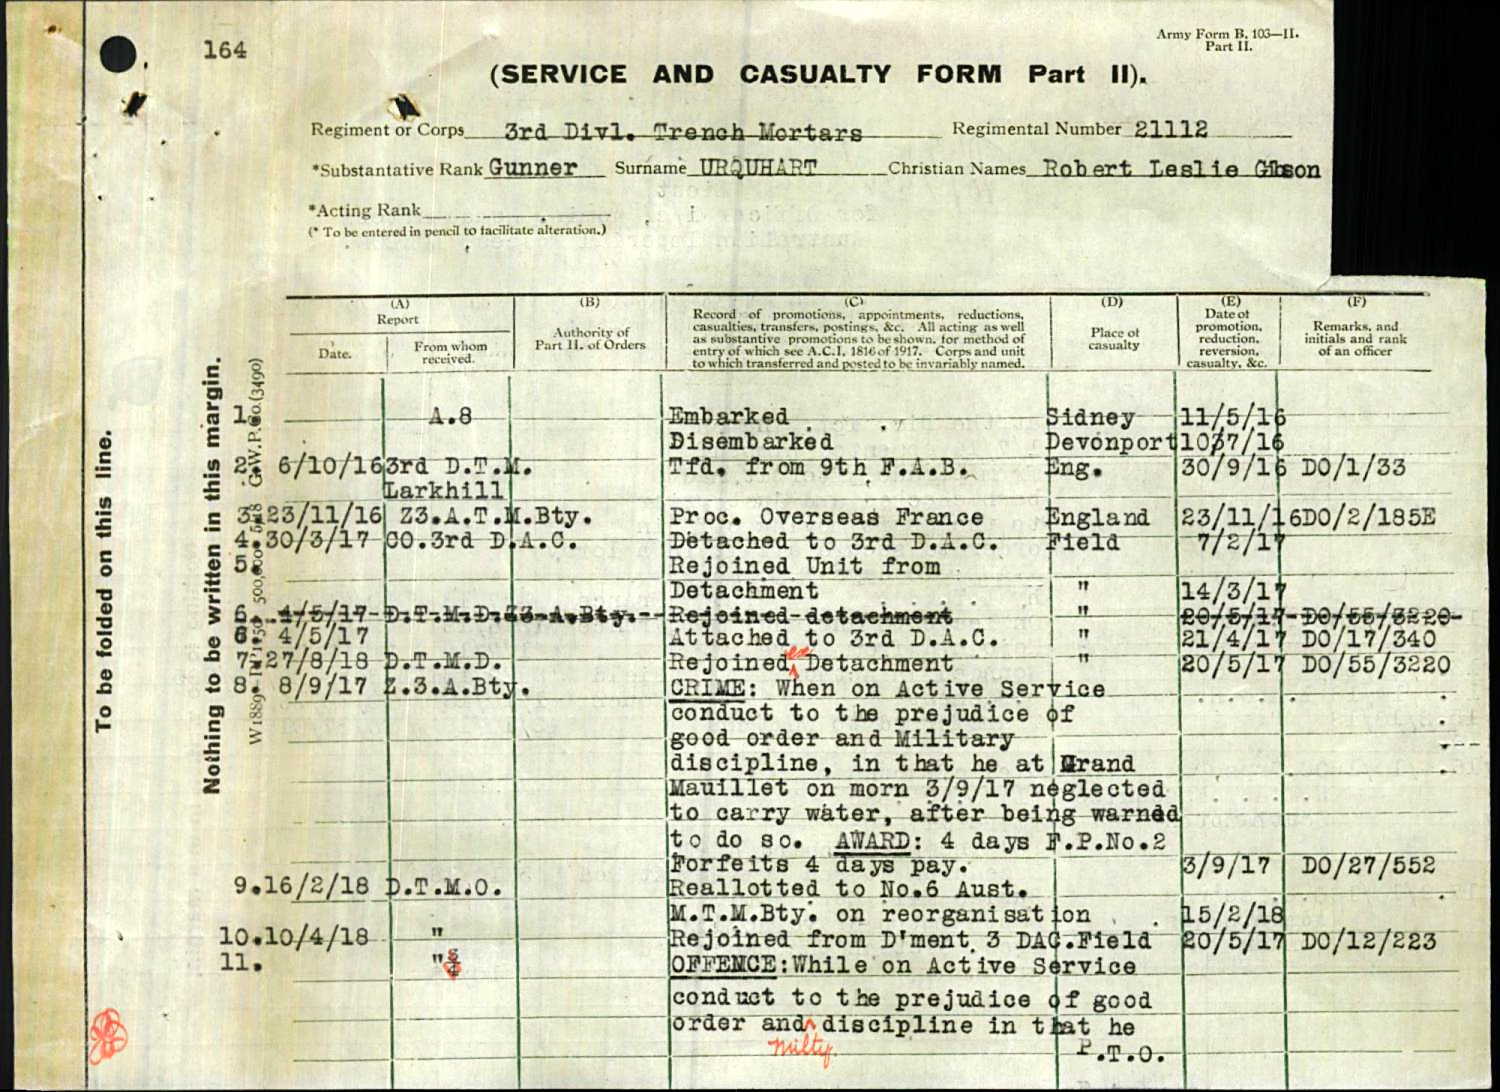 164
Army Form B. 103—II.
Part II.
(SERVICE AND CASUALTY FORM Part II).
Regiment or Corps 3rd Divl. Trench Mortars Regimental Number 21112
*Substantative Rank Gunner Surname URQUHART Christian Names Robert Leslie Gibson
*Acting Rank
(* To be entered in pencil to facilitate alteration.)
To be folded on this line.
Nothing to be written in this margin.
(A) (B) (C) (D) (E) (F)
Report
Date. From whom received.
Authority of Part II. of Orders
Record of promotions, appointments, reductions,
casualties, transfers, postings, &c. All acting as well
as substantive promotions to be shown, for method of
entry of which see A.C.I. 1816 of 1917. Corps and unit
to which transferred and posted to be invariably named.
Place of casualty
Date of promotion, reduction, reversion, casualty, &c.
Remarks, and initials and rank of an officer
1. A.8 Embarked Sidney 11/5/16
Disembarked Devonport 10/7/16
2. 6/10/16 3rd D.T.M. Tfd. from 9th F.A.B. Eng. 30/9/16 DO/1/33
Larkhill
3. 23/11/16 Z3.A.T.M.Bty. Proc. Overseas France England 23/11/16 DO/2/185E
4. 30/3/17 CO.3rd D.A.C. Detached to 3rd D.A.C. Field 7/2/17
5. Rejoined Unit from
Detachment " 14/3/17
6. 4/5/17- D.T.M.D.Z3-A.Bty.--Rejoined-detachment " 20/5/17-DO/55/3220-
6. 4/5/17 Attached to 3rd D.A.C. " 21/4/17 DO/17/340
7. 27/8/18 D.T.M.D. Rejoined ex Detachment " 20/5/17 DO/55/3220
8. 8/9/17 Z.3.A.Bty. CRIME: When on Active Service
conduct to the prejudice of
good order and Military
discipline, in that he at Grand
Mauillet on morn 3/9/17 neglected
to carry water, after being warned
to do so. AWARD: 4 days F.P.No.2
Forfeits 4 days pay. 3/9/17 DO/27/552
9. 16/2/18 D.T.M.O. Reallotted to No.6 Aust.
M.T.M.Bty. on reorganisation 15/2/18
10. 10/4/18 " Rejoined from D'ment 3 DAC. Field 20/5/17 DO/12/223
11. " OFFENCE: While on Active Service
conduct to the prejudice of good
order and milty. discipline in that he
P.T.O.